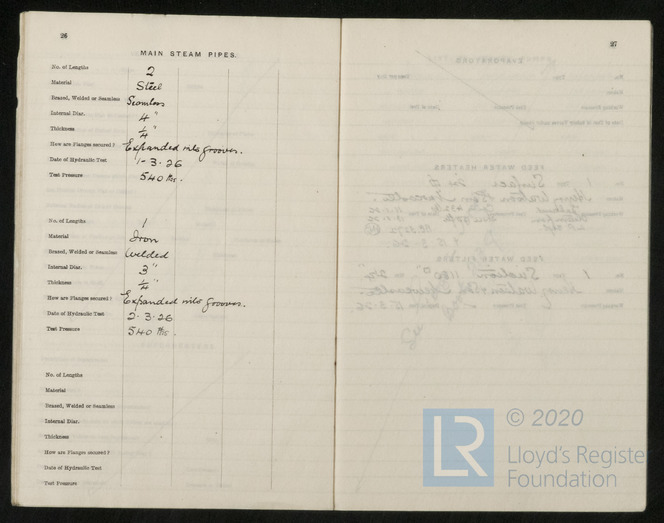 26
MAIN STEAM PIPES.
No. of Lengths 2
Material Steel
Brazed, Welded or Seamless Seamless
Internal Diar. 4"
Thickness 1/4"
How are Flanges secured? Expanded into grooves.
Date of Hydraulic Test 1-3-26
Test Pressure 540 lbs.
No. of Lengths 1
Material Iron
Brazed, Welded or Seamless Welded
Internal Diar. 3"
Thickness 1/4"
How are Flanges secured? Expanded into grooves.
Date of Hydraulic Test 2-3-26
Test Pressure 540 lbs.
No. of Lengths
Material
Brazed, Welded or Seamless
Internal Diar.
Thickness
How are Flanges secured?
Date of Hydraulic Test
Test Pressure
27
LR
© 2020
Lloyd's Register
Foundation